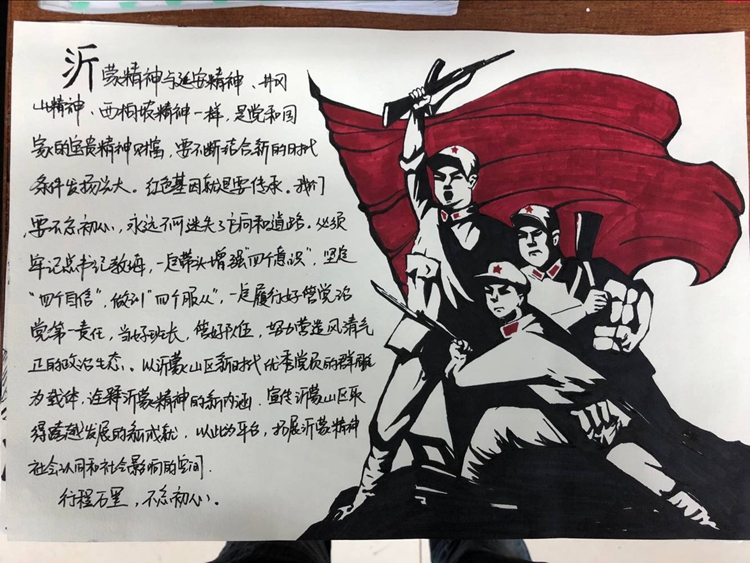 沂蒙精神与延安精神、井冈
山精神、西柏坡精神一样，是党和国
家的宝贵精神财富，要不断结合新的时代
条件发扬光大。红色基因就是要传承。我们
要不忘初心，永远不可迷失了方向和道路。必须
牢记总书记教诲，一定带头增强"四个意识"，坚定
"四个自信"，做到"四个服从"，一定履行好管党治
党第一责任，当好班长，带好队伍，努力营造风清气
正的政治生态。以沂蒙山区新时代优秀党员的群雕
为载体，诠释沂蒙精神的新内涵，宣传沂蒙山区取
得跨越发展的新成就，以此为平台，拓展沂蒙精神
社会认同和社会影响的空间.
行程万里，不忘初心。